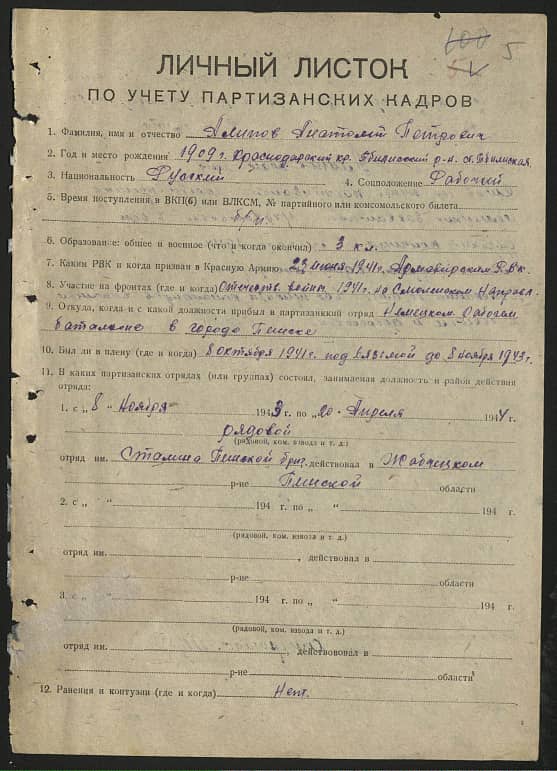 600 5
ЛИЧНЫЙ ЛИСТОК
ПО УЧЕТУ ПАРТИЗАНСКИХ КАДРОВ
1. Фамилия, имя и отчество Алипов Анатолий Петрович
2. Год и место рождения 1909 г. Краснодарский кр. Тбилисский р-н. ст. Тбилиская
3. Национальность Русский 4. Соцположение Рабочий
5. Время поступления в ВКП(б) или ВЛКСМ, № партийного или комсомольского билета
б/п
6. Образование: общее и военное (что и когда окончил) 3 кл.
7. Каким РВК и когда призван в Красную Армию 23 июня 1941г. Армавирским РВК.
8. Участие на фронтах (где и когда) Отечеств. войны 1941г. на Смоленском Направл.
9. Откуда, когда и с какой должности прибыл в партизанкий отряд Немецком Рабочем
батальоне в городе Пинске
10. Был ли в плену (где и когда) 8 октября 1941г. под вязьмой до 8 ноября 1943г.
11. В каких партизанских отрядах (или группах) состоял, занимаемая должность и район действия
отряда:
1. с „ 8 “ Ноября 1943 г. по „ 20 “ Апреля 1944 г.
рядовой
(рядовой, ком. взвода и т. д.)
отряд им. Сталина Пинской бриг. действовал в Жабчицком
р-не Пинской области
2. с „ “ 194 г. по „ “ 194 г.
(рядовой, ком. взвода и т. д.)
отряд им. , действовал в
р-не области
3. с „ “ 194 г. по „ “ 194 г.
(рядовой, ком. взвода и т. д.)
отряд им. , действововал в
р-не области
12. Ранения и контузии (где и когда) Нет.